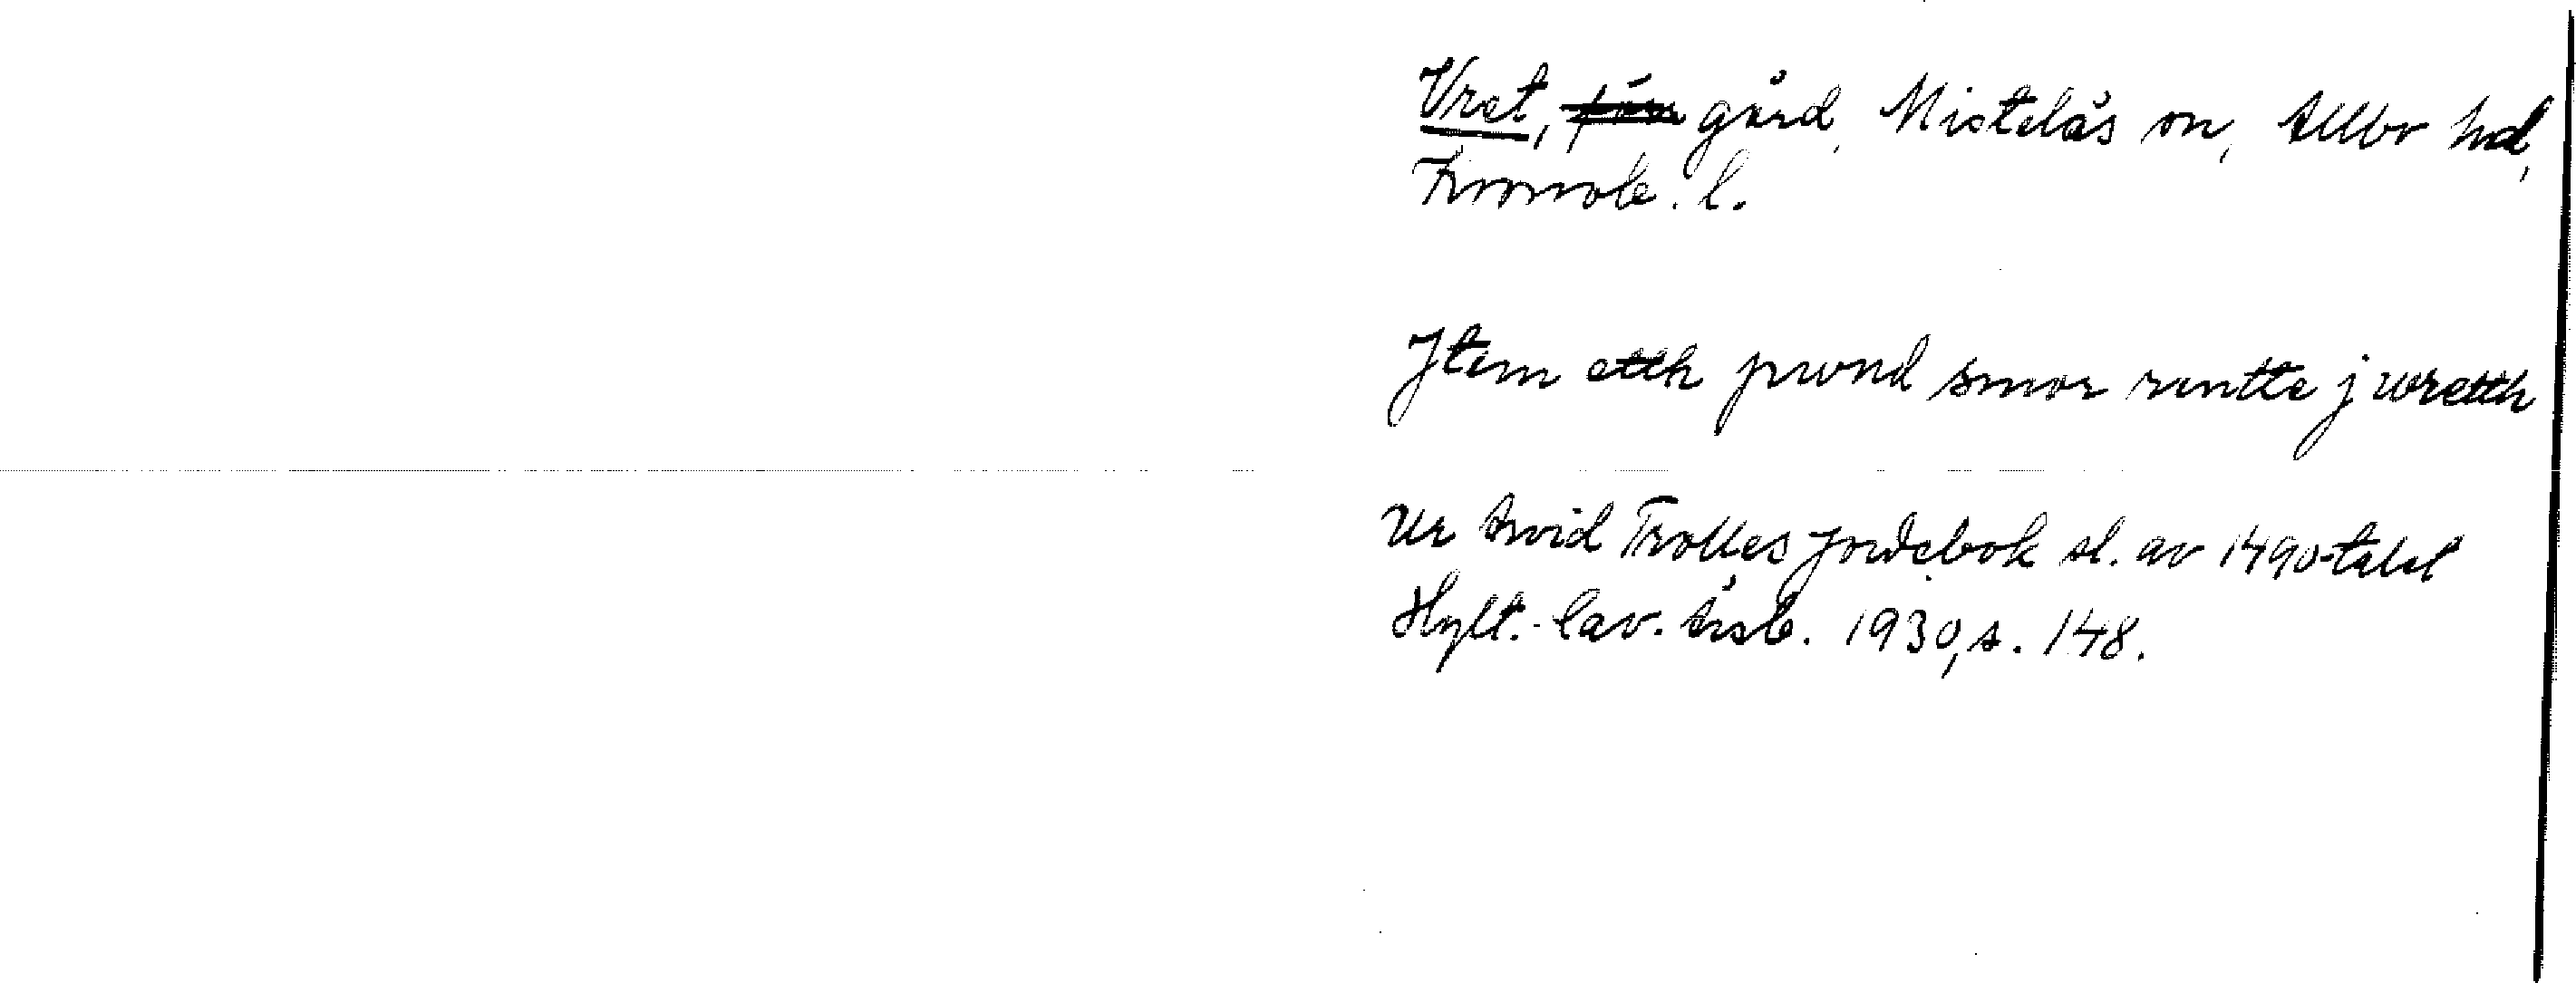 Vret, gård, Mistelås sn, Allbo hd,
Kronob. l.
Jtem etth pwnd smor rentte j wretth
Ur Arvid Trolles jordebok sl. av 1490-talet
Hylt.-Cav. årsb. 1930, s. 148.